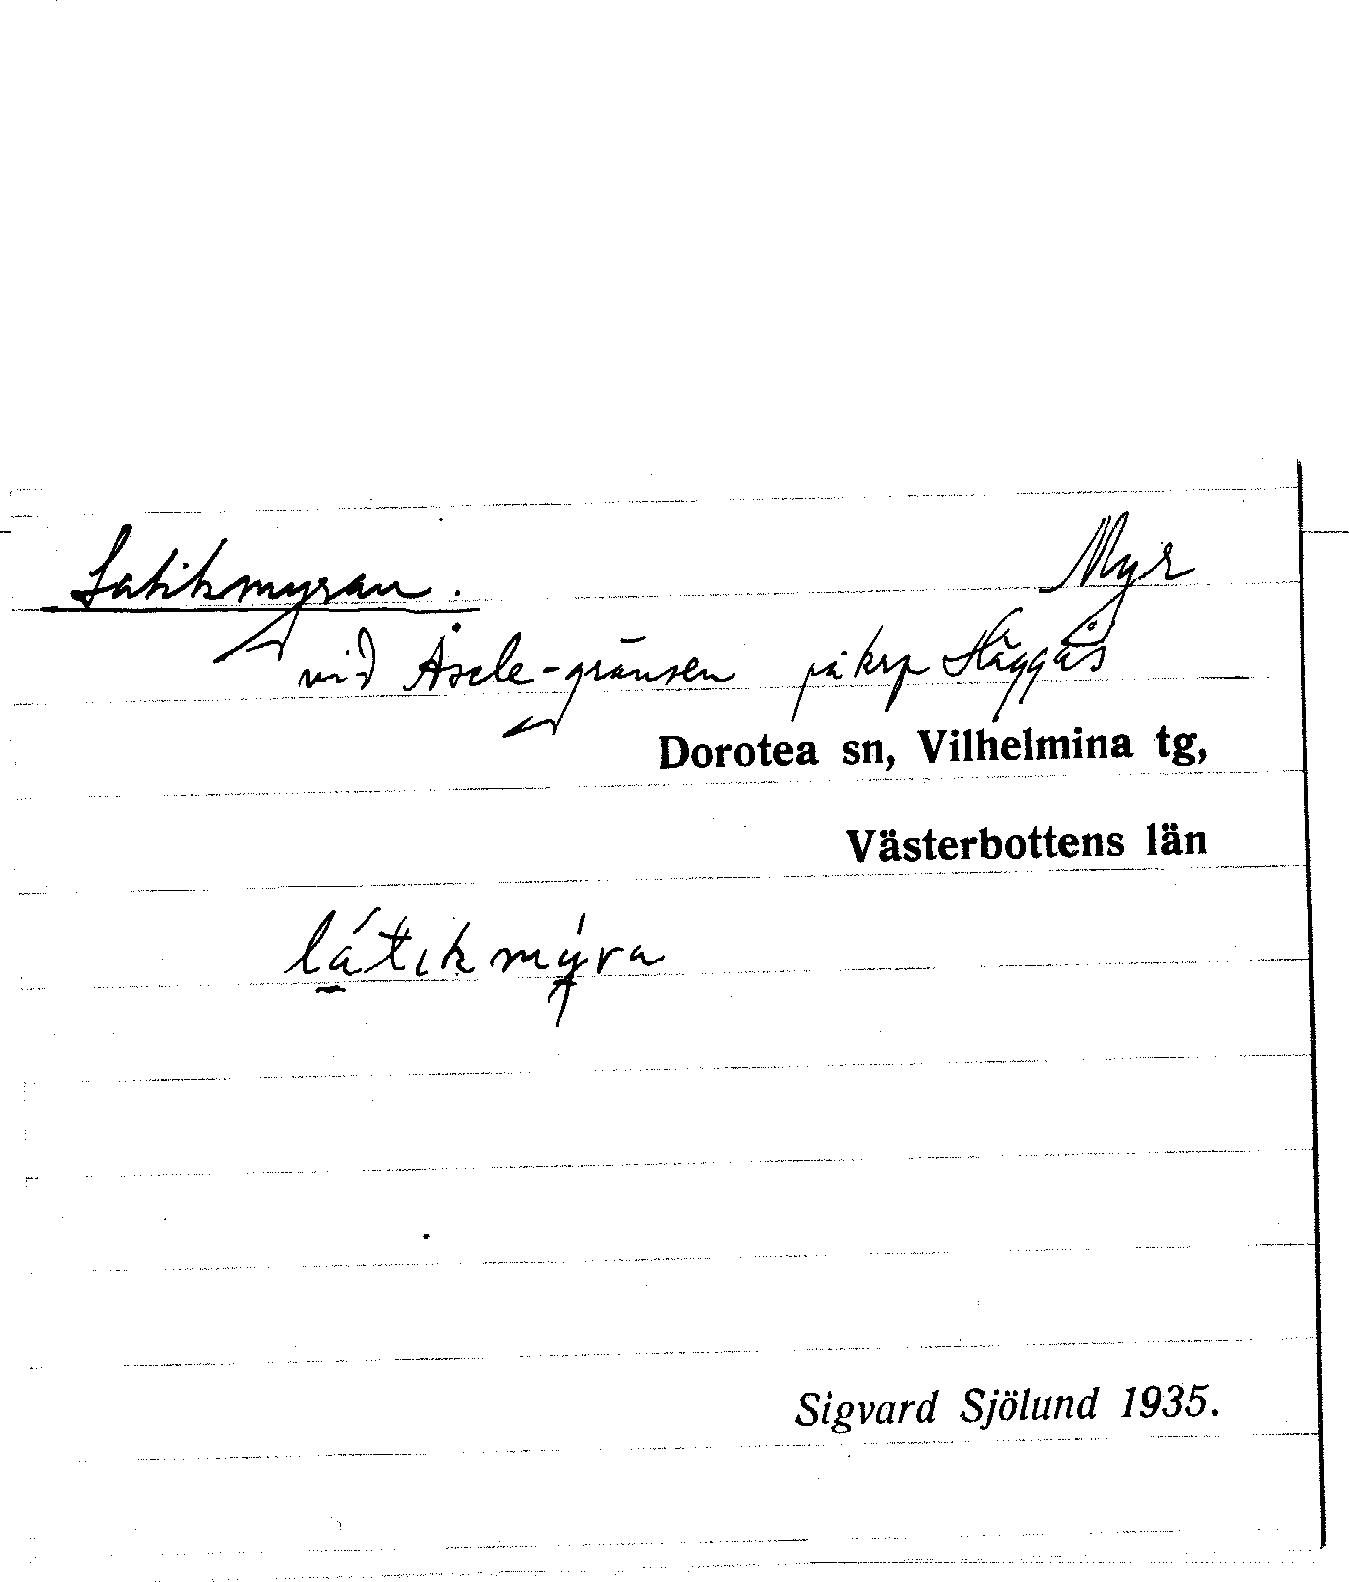 Latikmyran. Myr
vid Åsele-gränsen på krp Häggås
Dorotea sn, Vilhelmina tg,
Västerbottens län
látikmýra
Sigvard Sjölund 1935.